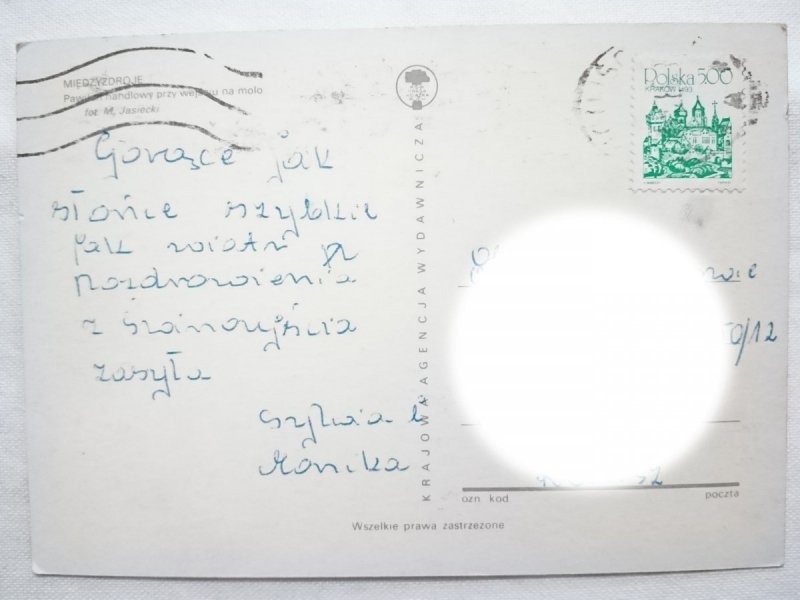 MIĘDZYZDROJE
Pawilon handlowy przy wejściu na molo
fot. M. Jasiecki
Gorące jak
słońce szybkie
jak wiatr
pozdrowienia
z Świnoujścia
zasyła
Sylwia i
Monika
KRAJOWA AGENCJA WYDAWNICZA
Polska 500
KRAKÓW 1493
10/12
ozn kod
poczta
Wszelkie prawa zastrzeżone